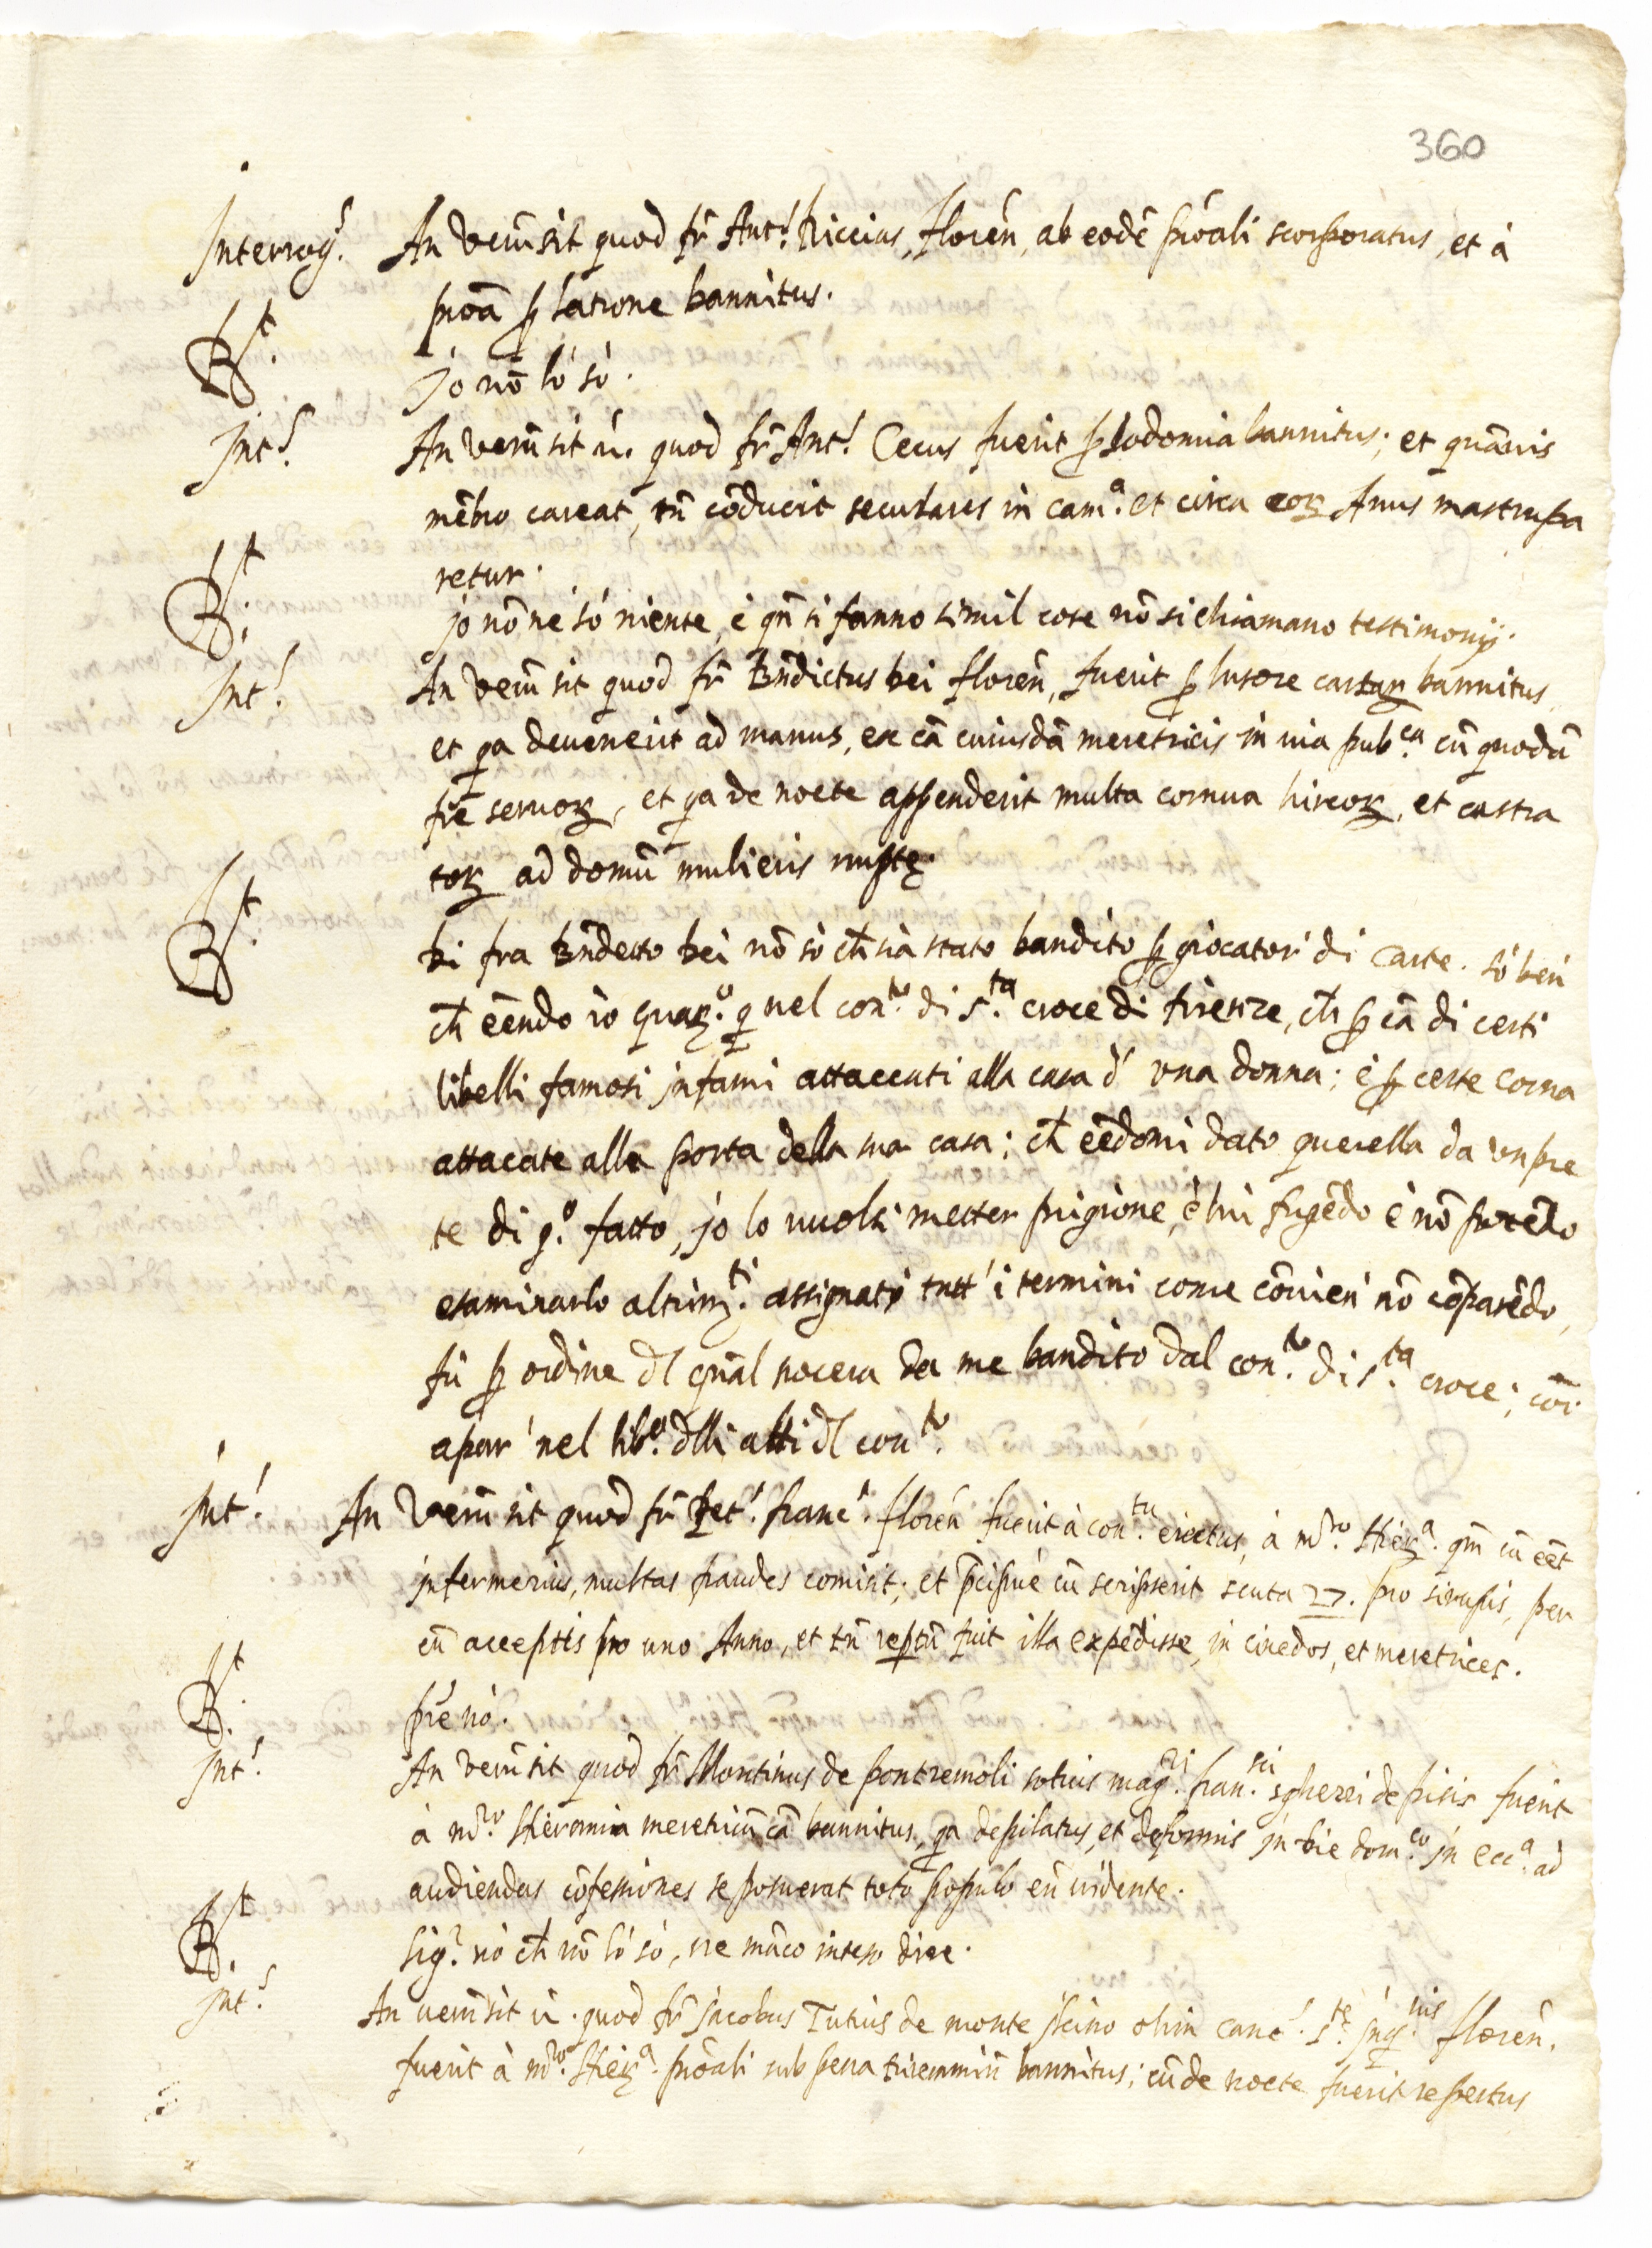 360
Interrog.s An verũ sit quod fr̃ Ant.s Riccius, floreñ, ab eodẽ proãli scorporatus, et à
proã ꝑ latrone bannitus.
R.t jo nõ lò sò.
Int.s An verũ sit ũ. quod fr̃ Ant.s Cecus fuerit ꝑ sodomia bannitus; et quãuis
mẽbro careat, tñ cõducit seculares in cam.a et circa eoꝝ Anus mastrupa
retur.
R.t jo nõ ne sò niente, è qñ si fanno simil cose nõ si chiamano testimonij.
Int.s An verũ sit quod fr̃ Bñdictus bei floreñ, fuerit ꝑ lusore cartaꝝ bannitus,
et qa deuenerit ad manus, ex cã cuiusdã meretricis in uia pub.ca cũ quodã
frẽ seruoꝝ, et qa de nocte appenderit multa cornua hircoꝝ, et castra
toꝝ ad domũ mulieris nuptę.
R.t Di fra Bñdetto bei nõ sò ch̃ sià stato bandito ꝑ giocator' di carte. sò ben'
ch̃ eẽndo iò guar.o q nel con.to di s.ta croce di firenze, ch̃ ꝑ cã di certi
libelli famosi jnfami attaccati alla casa d' una donna; è ꝑ certe corna
attacate alla porta della sua casa; ch̃ eẽdomi dato querella da un pre
te di q.o fatto, jo lo uuolsi metter prigione, è lui fugẽdo è nõ potẽdo
esaminarlo altrim.ti assignati tutt' i termini come cõuien' nõ cõparẽdo,
fù ꝑ ordine dl gñal nocera da me bandito dal con.to di s.ta croce; cõe
apar' nel lib.o dlli atti dl con.to
Int.s An verũ sit quod fr̃ Pet.s franc.s floreñ fuerit à con.tu eiectus, à m.ro Hier.a qm̃ cũ eẽt
jnfermerius, multas fraudes comisit; et p̃cipuè cũ scripserit scuta 27. pro sirupis, per
eũ acceptis pro uno Anno, et tñ reptũ fuit illa expẽdisse, in cinedos, et meretrices.
R.t prẽ nò.
Int.s An verũ sit quod fr̃ Martinus de pontremoli sotius mag.ri fran.sci sgherri de pisis fuerit
à m.ro Hieromia meretricũ cã bannitus, qa depilatus, et deformis jn die dom.co jn ecc.a ad
audiendas cõfesiones se posuerat toto populo eũ uidente.
R.t Sig.r nò ch̃ nõ lò sò, ne mãco inteso dire.
Int.s An uerũ sit ũ. quod fr̃ Jacobus Tutius de monte jlcino olim canc.s s.te jnq.nis floreñ.
fuerit à m.ro Hier.a proãli sub pena triremmiũ bannitus; cũ de nocte fuerit repertus